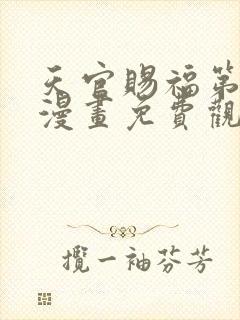 天官賜福第
漫畫免費觀
攬一袖芬芳